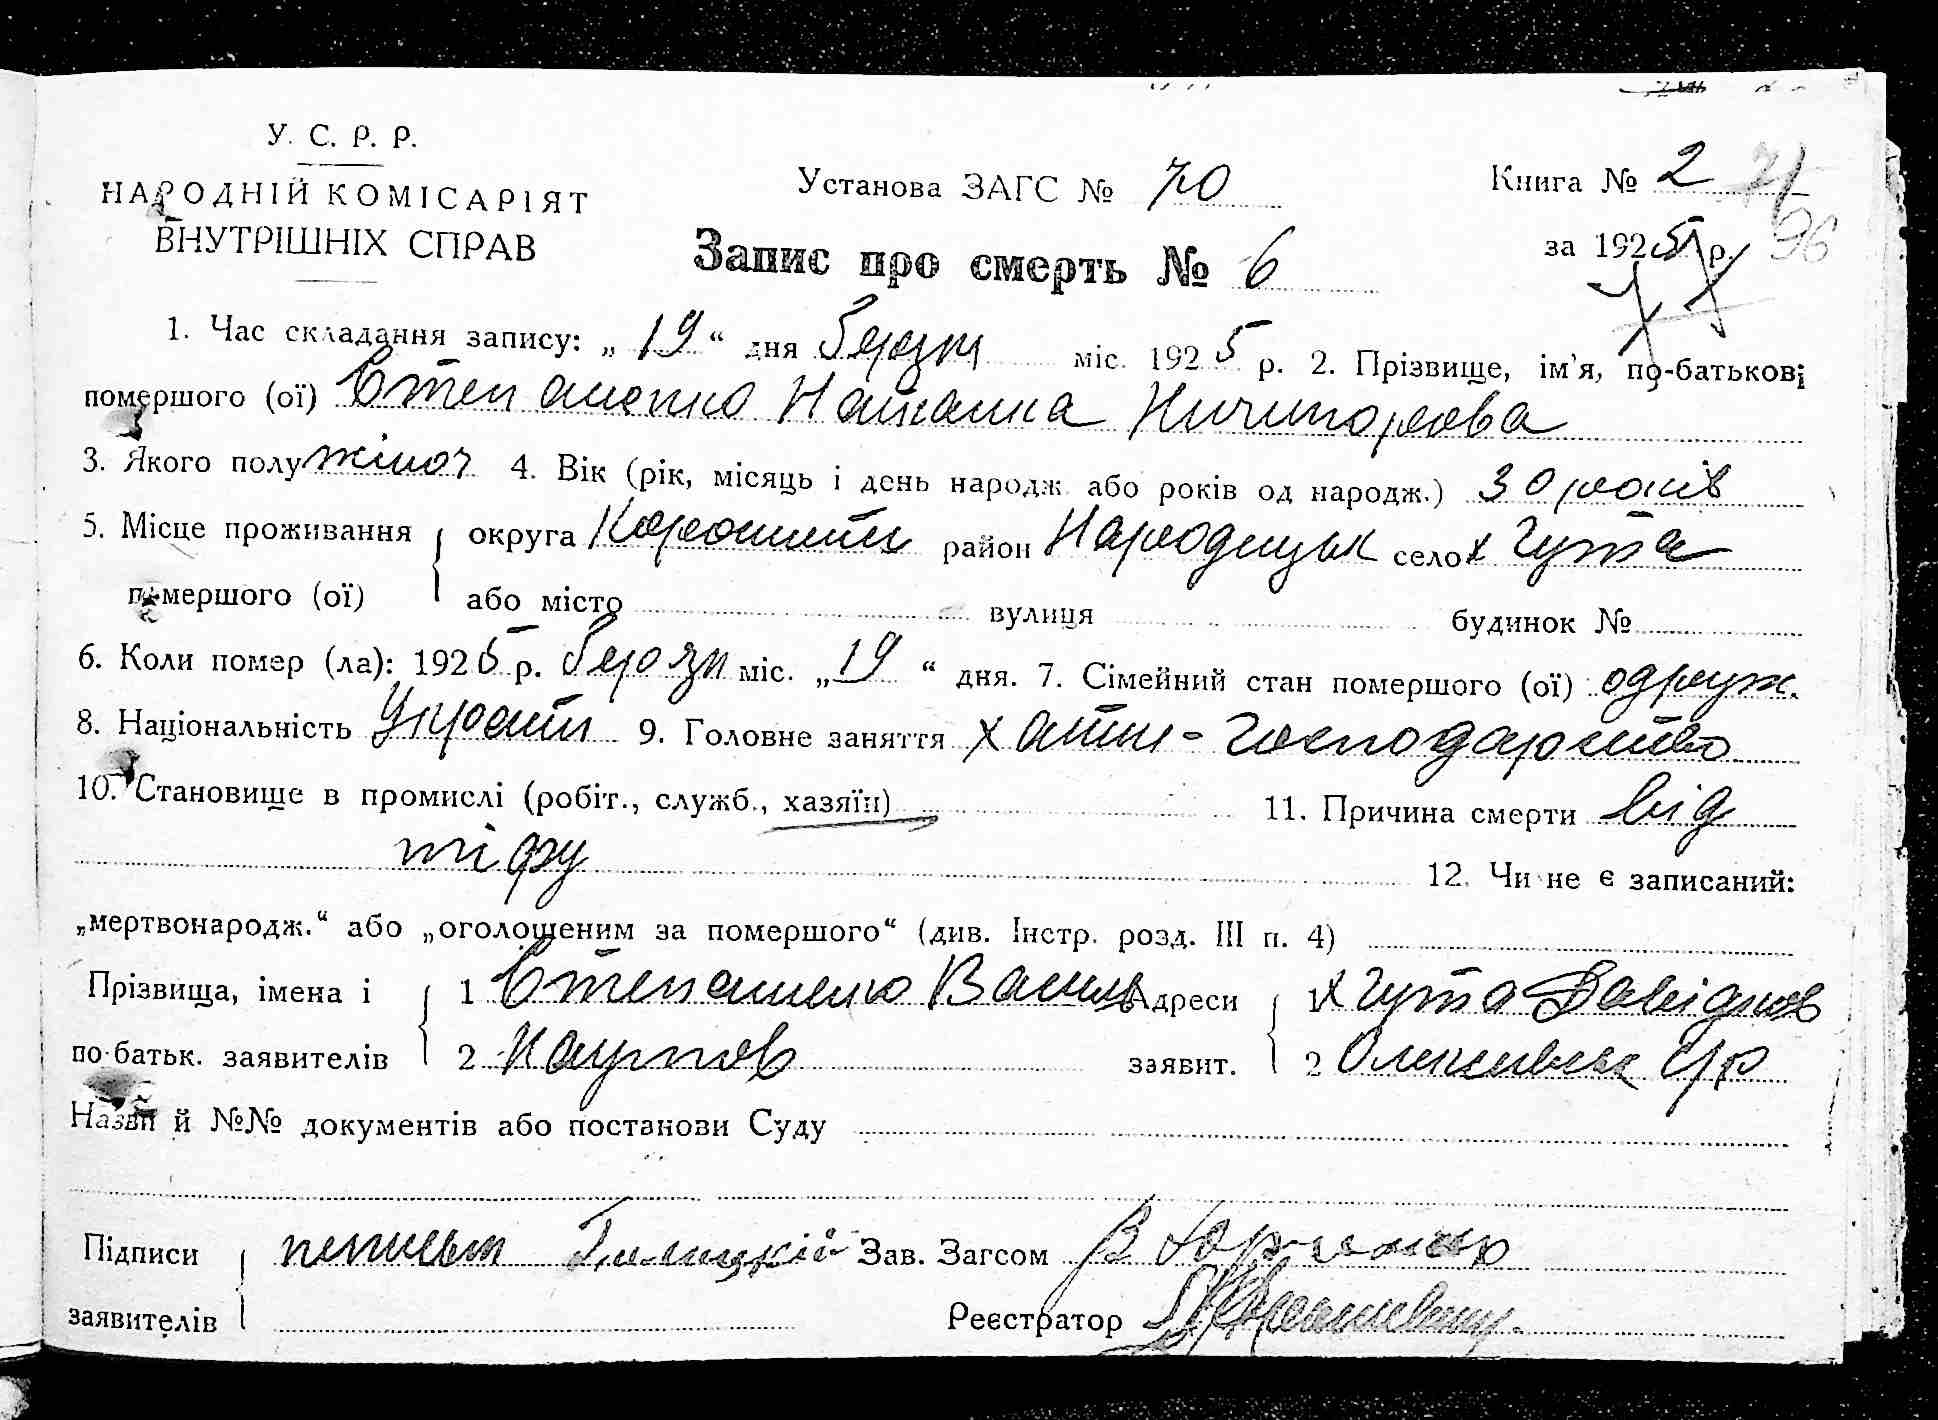 У. С. Р. Р.
НАРОДНІЙ КОМІСАРІЯТ
ВНУТРІШНІХ СПРАВ
Установа ЗАГС № 70
Книга № 2
за 1925 р.
Запис про смерть № 6
1. Час складання запису: „ 19 “ дня березня міс. 1925 р. 2. Прізвище, ім'я, по-батькові
помершого (ої) Степаненко Наталка Ничипорова
3. Якого полу жіноч 4. Вік (рік, місяць і день народж. або років од народж.) 30 років
5. Місце проживання округа Коростень район Народицьк село х Гута
помершого (ої) або місто вулиця будинок №
6. Коли помер (ла): 1925 р. березня міс. „ 19 “ дня. 7. Сімейний стан помершого (ої) одруж.
8. Національність 9. Головне заняття хатнє-господарство
10. Становище в промислі (робіт., служб., хазяїн) 11. Причина смерти від
тіфу
12. Чи не є записаний:
„мертвонародж.“ або „оголошеним за помершого“ (див. Інстр. розд. III п. 4)
Прізвища, імена і 1 Степаненко Василь Адреси 1 х Гута
по-батьк. заявителів 2 заявит. 2
Назви й №№ документів або постанови Суду
Підписи Зав. Загсом
заявителів Реєстратор